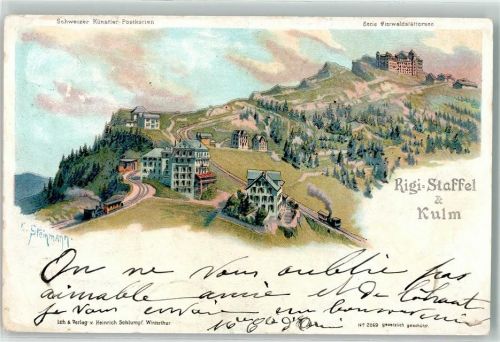 Schweizer Künstler-Postkarten
Serie Vierwaldstättersee
Rigi-Staffel
&
Kulm
Steinmann.
On ne vous oublie pas
aimable amie et de
je vous envoie un
Lith & Verlag v. Heinrich Schlumpf, Winterthur
No 2069 gesetzlich geschützt.